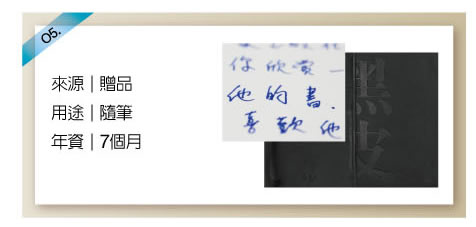 05.
來源｜贈品
用途｜隨筆
年資｜7個月
你欣賞一
他的書.
喜歡他
黑皮